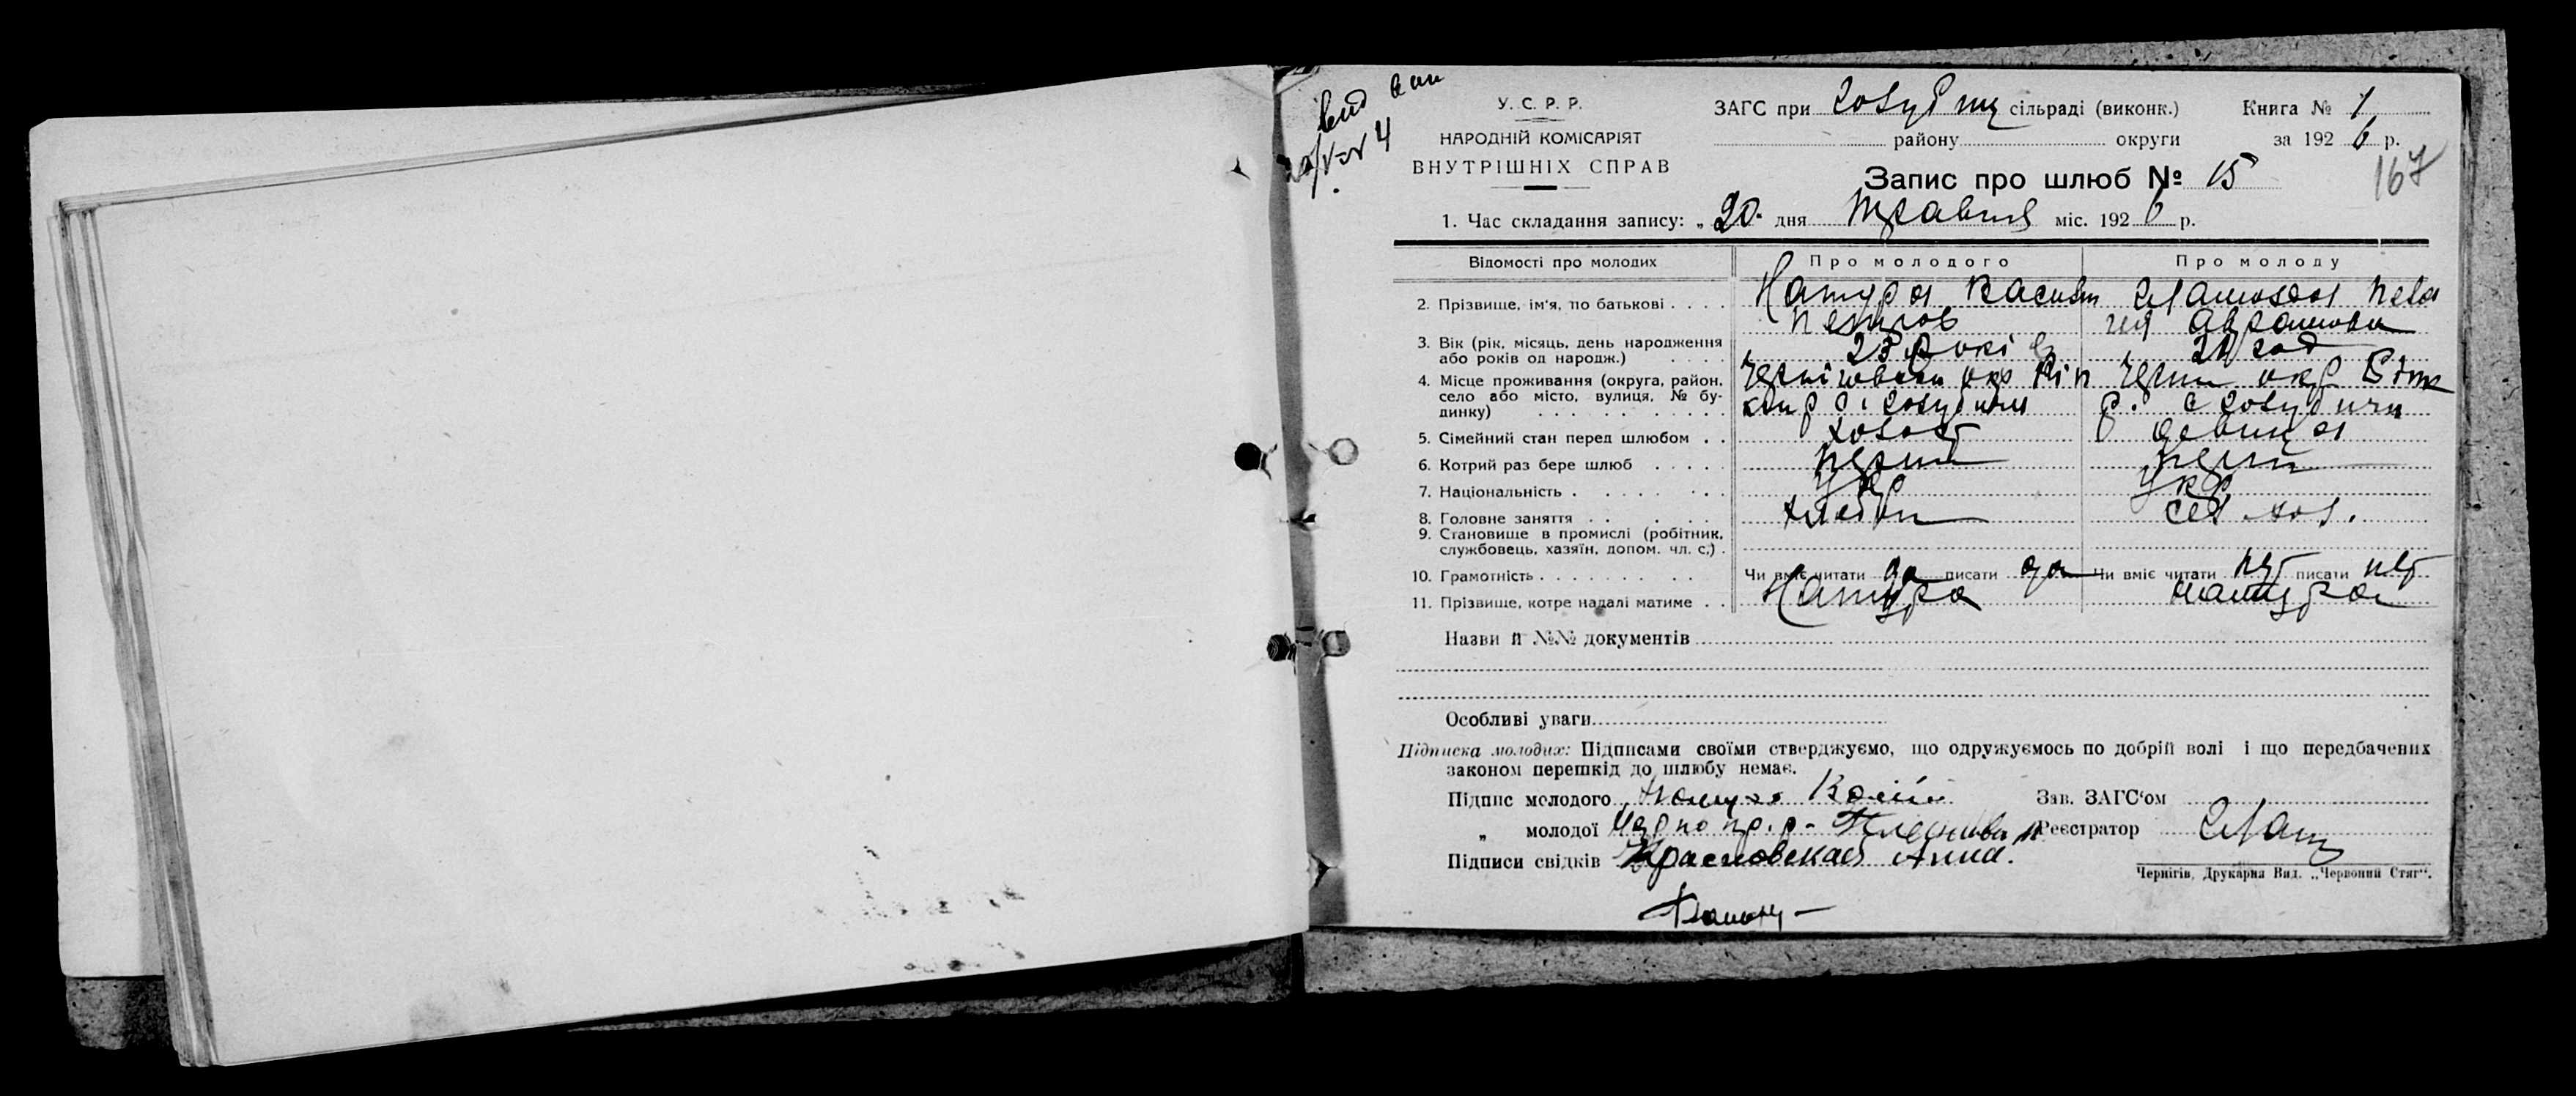 вид вип
20/V № 4
У. С. Р. Р.
НАРОДНІЙ КОМІСАРІЯТ
ВНУТРІШНІХ СПРАВ
ЗАГС при Голубиц сільраді (виконк.)
району округи
Книга № 1
за 1926 р.
167
Запис про шлюб № 15
1. Час складання запису: „20" дня Травня міс. 1926 р.
Відомості про молодих Про молодого Про молоду
2. Прізвище, ім'я, по батькові . . . . Натура Василь Пела
Петров гея Аврамова
3. Вік (рік, місяць, день народження
або років од народж.) . . . . 23 років 21 год
4. Місце проживання (округа, район,
село або місто, вулиця, № бу-
динку) . . . . . . . . Чернігівськ окр Ріп Черни окр
кин р с. Голубичи р. с Голубичи
5. Сімейний стан перед шлюбом . . холост девица
6. Котрий раз бере шлюб . . . . . перший перший
7. Національність . . . . . . . Укр Укр
8. Головне заняття . . . . . . . хлебоп сел хоз.
9. Становище в промислі (робітник,
службовець, хазяїн, допом. чл. с.) .
10. Грамотність . . . . . . . . . Чи вміє читати да писати да Чи вміє читати нет писати нет
11. Прізвище, котре надалі матиме . . Натура Натура
Назви й №№ документів
Особливі уваги
Підписка молодих: Підписами своїми стверджуємо, що одружуємось по добрій волі і що передбачених
законом перешкід до шлюбу немає.
Підпис молодого Натура Зав. ЗАГС'ом
„ молодої Реєстратор
Підписи свідків Красновская Анна.
Чернігів, Друкарня Вид. „Червоний Стяг".